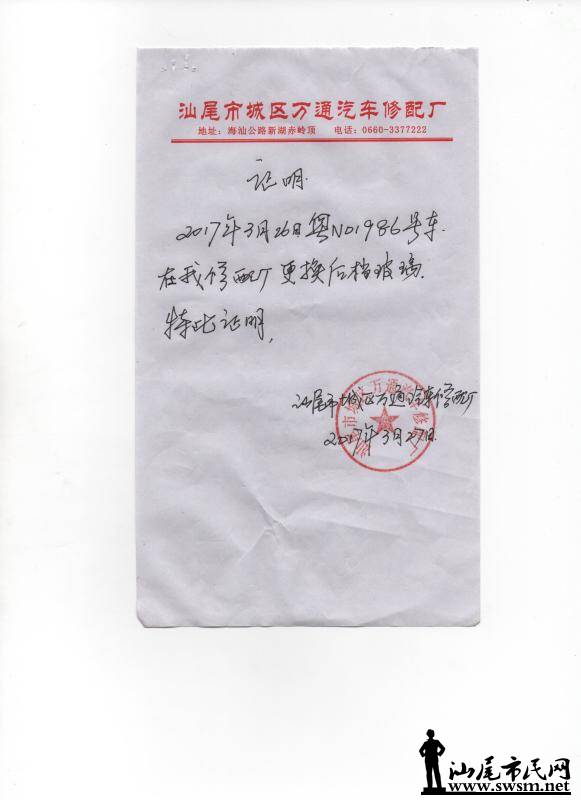 汕尾市城区万通汽车修配厂
地址：海汕公路新湖赤岭顶 电话：0660-3377222
证明
2017年3月26日粤ND1986号车.
在我修配厂更换后档玻璃.
特此证明,
汕尾市城区万通汽车修配厂
2017年3月27日
汕尾市民网
www.swsm.net